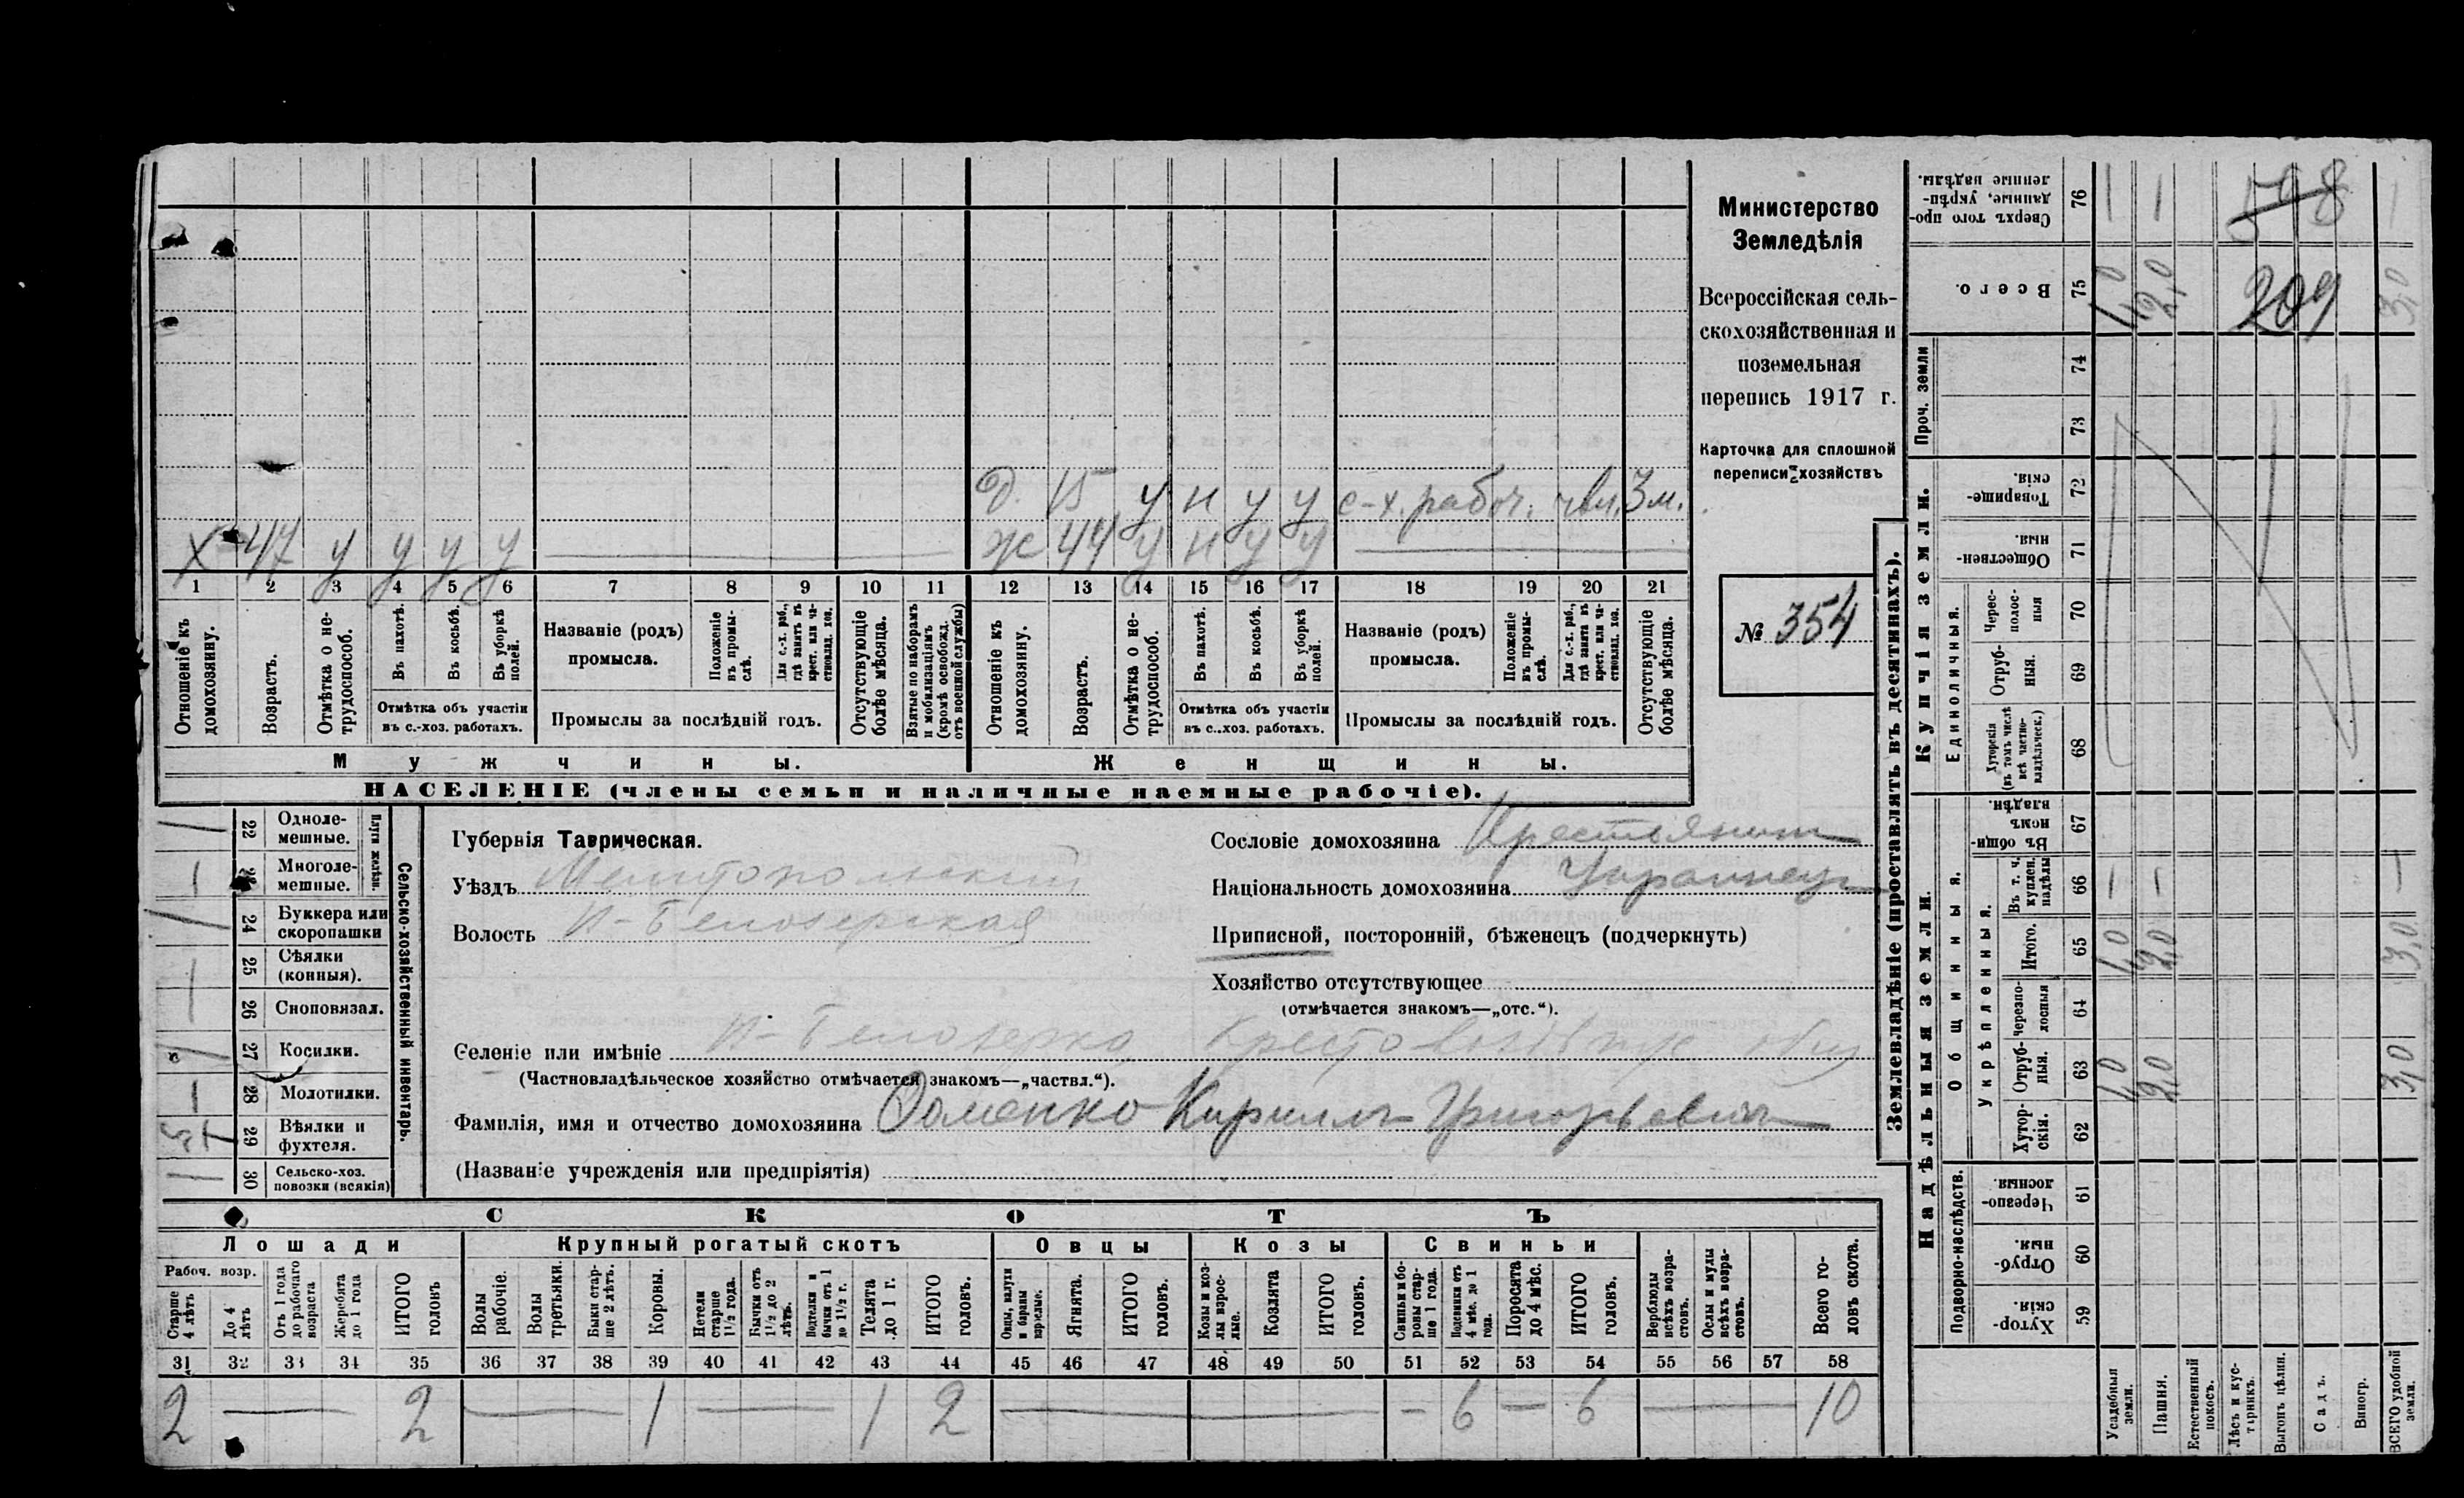 Министерство
Земледѣлія
Всероссійская сель-
скохозяйственная и
поземельная
перепись 1917 г.
Карточка для сплошной
переписи хозяйствъ
№ 354
Д. 15 у н у у с-х. рабоч. 3 м.
Х 47 у у у у Ж 44 у н у у
1 2 3 4 5 6 7 8 9 10 11 12 13 14 15 16 17 18 19 20 21
Отношеніе къ домохозяину.
Возрастъ.
Отмѣтка о не-трудоспособ.
Въ пахотѣ.
Въ косьбѣ.
Въ уборкѣ полей.
Отмѣтка объ участіи
въ с.-хоз. работахъ.
Названіе (родъ)
промысла.
Положеніе въ промы-слѣ.
Для с.-х. раб., гдѣ занятъ въ крест. или ча-стновлад. хоз.
Промыслы за послѣдній годъ.
Отсутствующіе болѣе мѣсяца.
Взятые по наборамъ и мобилизаціямъ (кромѣ освобожд. отъ военной службы)
Отношеніе къ домохозяину.
Возрастъ.
Отмѣтка о не-трудоспособ.
Въ пахотѣ.
Въ косьбѣ.
Въ уборкѣ полей.
Отмѣтка объ участіи
въ с..хоз. работахъ.
Названіе (родъ)
промысла.
Положеніе въ промы-слѣ.
Для с.-х. раб., гдѣ занята въ крест. или ча-стновлад. хоз.
Промыслы за послѣдній годъ.
Отсутствующіе болѣе мѣсяца.
Мужчины.
Женщины.
НАСЕЛЕНІЕ (члены семьи и наличные наемные рабочіе).
Сельско-хозяйственный инвентарь.
Плуги желѣзн.
22 Одноле-мешные.
23 Многоле-мешные. 1
24 Буккера или скоропашки
25 Сѣялки (конныя).
26 Сноповязал.
27 Косилки.
28 Молотилки.
29 Вѣялки и фухтеля.
30 Сельско-хоз. повозки (всякія)
Губернія Таврическая.
Уѣздъ Мелитопольский
Волость Н-Белозерская
Сословіе домохозяина Крестьянин
Національность домохозяина Украинец
Приписной, посторонній, бѣженецъ (подчеркнуть)
Хозяйство отсутствующее
(отмѣчается знакомъ—„отс.“).
Селеніе или имѣніе Н-Белозерка
(Частновладѣльческое хозяйство отмѣчается знакомъ—„частвл.“).
Фамилія, имя и отчество домохозяина Кирилл Григорьевич
(Названіе учрежденія или предпріятія)
СКОТЪ
Лошади
Крупный рогатый скотъ
Овцы
Козы
Свиньи
Рабоч. возр.
Старше 4 лѣтъ
До 4 лѣтъ
Отъ 1 года до рабочаго возраста
Жеребята до 1 года
ИТОГО головъ
Волы рабочіе.
Волы третьяки.
Быки стар-ше 2 лѣтъ.
Коровы.
Нетели старше 1½ года.
Бычки отъ 1½ до 2 лѣтъ.
Подтелки и бычки отъ 1 до 1½ г.
Телята до 1 г.
ИТОГО головъ.
Овцы, валухи и бараны взрослые.
Ягнята.
ИТОГО головъ.
Козы и коз-лы взрос-лые.
Козлята
ИТОГО головъ.
Свиньи и бо-ровы стар-ше 1 года.
Подсвинки отъ 4 мѣс. до 1 года.
Поросята до 4 мѣс.
ИТОГО головъ.
Верблюды всѣхъ возра-стовъ.
Ослы и мулы всѣхъ возра-стовъ.
Всего го-ловъ скота.
31 32 33 34 35 36 37 38 39 40 41 42 43 44 45 46 47 48 49 50 51 52 53 54 55 56 57 58
2 — 2 — 1 — 1 2 — — 6 — 6 — 10
Землевладѣніе (проставлять въ десятинахъ).
Купчія земли.
Надѣльныя земли.
Проч. земли
Единоличныя.
Общинныя.
Укрѣпленныя.
Подворно-наслѣдств.
76 Сверхъ того про-данные, укрѣп-ленные надѣлы.
75 Всего.
74
73
72 Товарище-скія.
71 Обществен-ныя.
70 Черес-полос-ныя
69 Отруб-ныя.
68 Хуторскія (въ томъ числѣ всѣ частно-владѣльческ.)
67 Въ общин-номъ владѣн.
66 Въ т. ч. куплен. надѣлы
65 Итого.
64 Черезпо-лосныя
63 Отруб-ныя.
62 Хутор-скія.
61 Черезпо-лосныя.
60 Отруб-ныя.
59 Хутор-скія.
Усадебныя земли.
Пашня.
Естественный покосъ.
Лѣсъ и кус-тарникъ.
Выгонъ цѣлин.
Садъ.
Виногр.
ВСЕГО удобной земли.
209
2,0
3,0
2,0
3,0
2,0
3,0